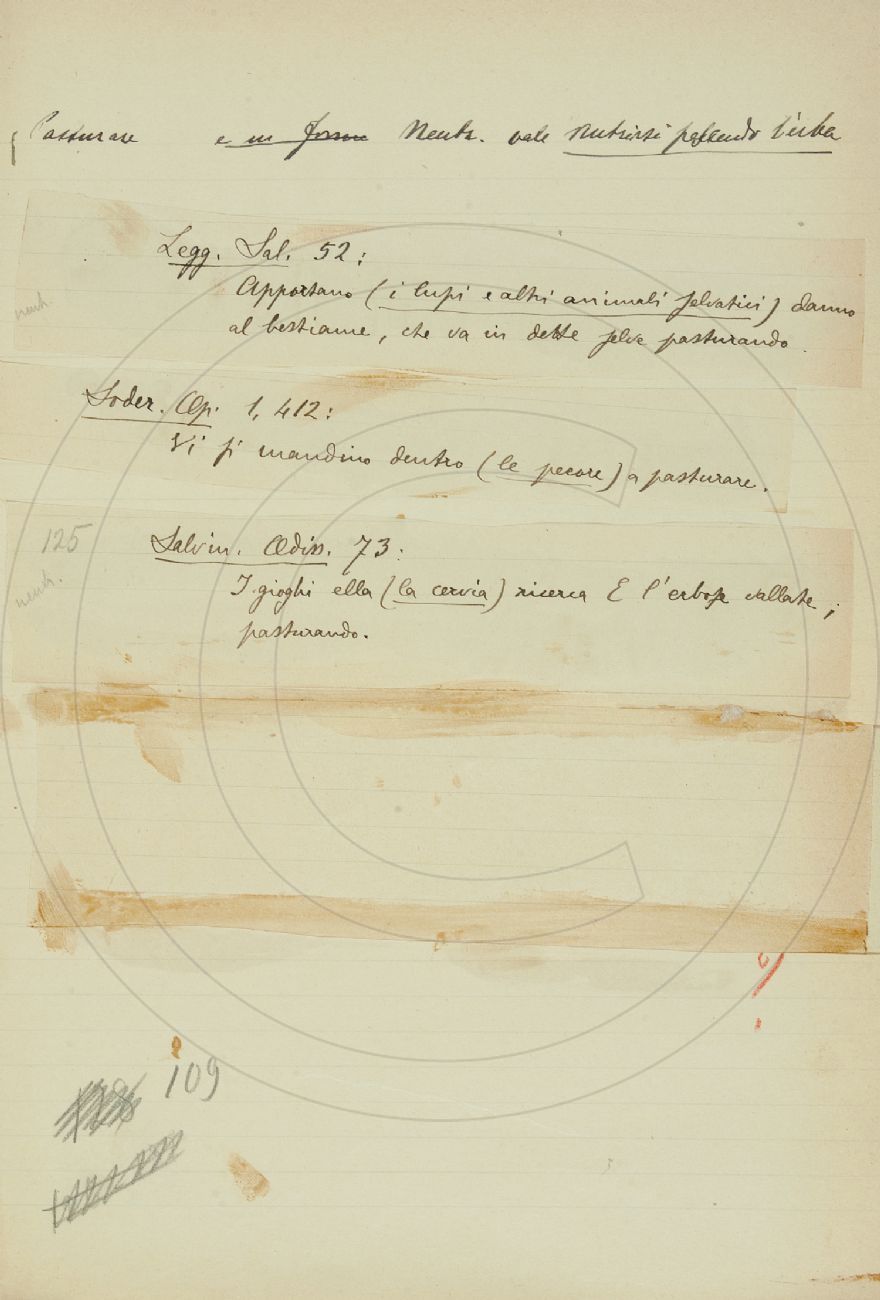 Pasturare e in forma Neutr. vale Nutrirsi pascendo l'erba
Legg. Sal. 52:
Apportano (i lupi e altri animali selvatici) danno
neutr.
al bestiame, che va in dette selve pasturando.
Soder. Op. 1, 412:
Vi si mandino dentro (le pecore) a pasturare.
125
Salvin. Odiss. 73:
I gioghi ella (la cervia) ricerca E l'erbose vallate,
neutr.
pasturando.
109